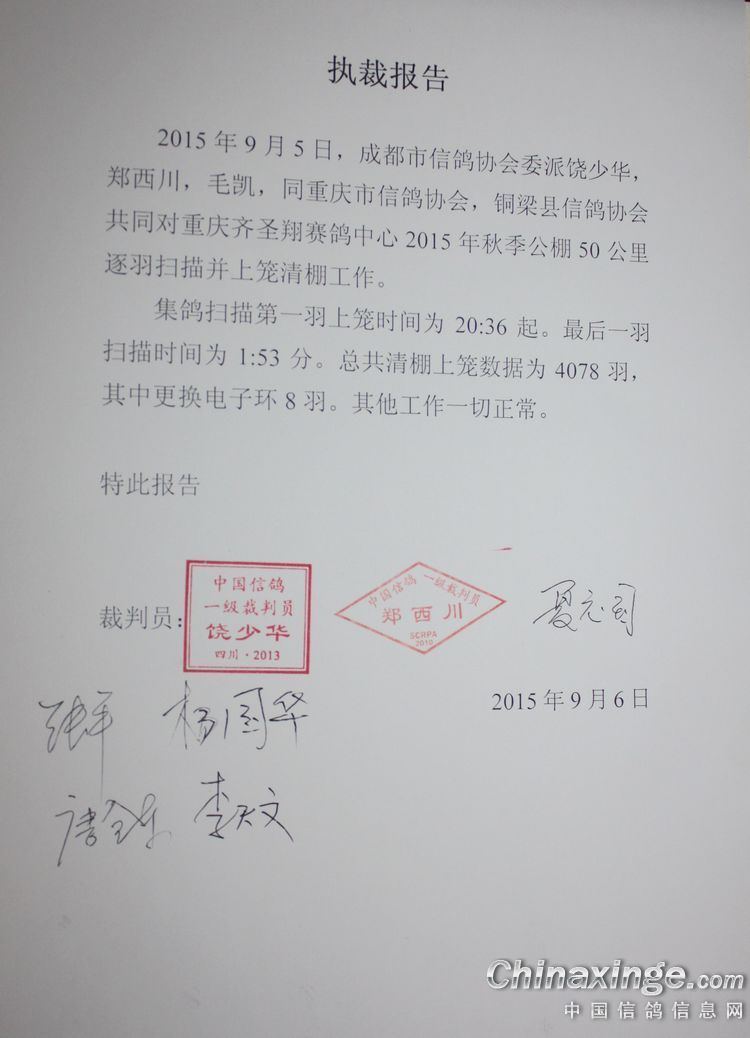 执裁报告
2015年9月5日，成都市信鸽协会委派饶少华，
郑西川，毛凯，同重庆市信鸽协会，铜梁县信鸽协会
共同对重庆齐圣翔赛鸽中心2015年秋季公棚50公里
逐羽扫描并上笼清棚工作。
集鸽扫描第一羽上笼时间为20:36起。最后一羽
扫描时间为1:53分。总共清棚上笼数据为4078羽，
其中更换电子环8羽。其他工作一切正常。
特此报告
裁判员：
中国信鸽
一级裁判员
饶少华
四川·2013
中国信鸽 一级裁判员
郑西川
SCRPA
2010
2015年9月6日
杨国华
李天文
Chinaxinge.com
中国信鸽信息网